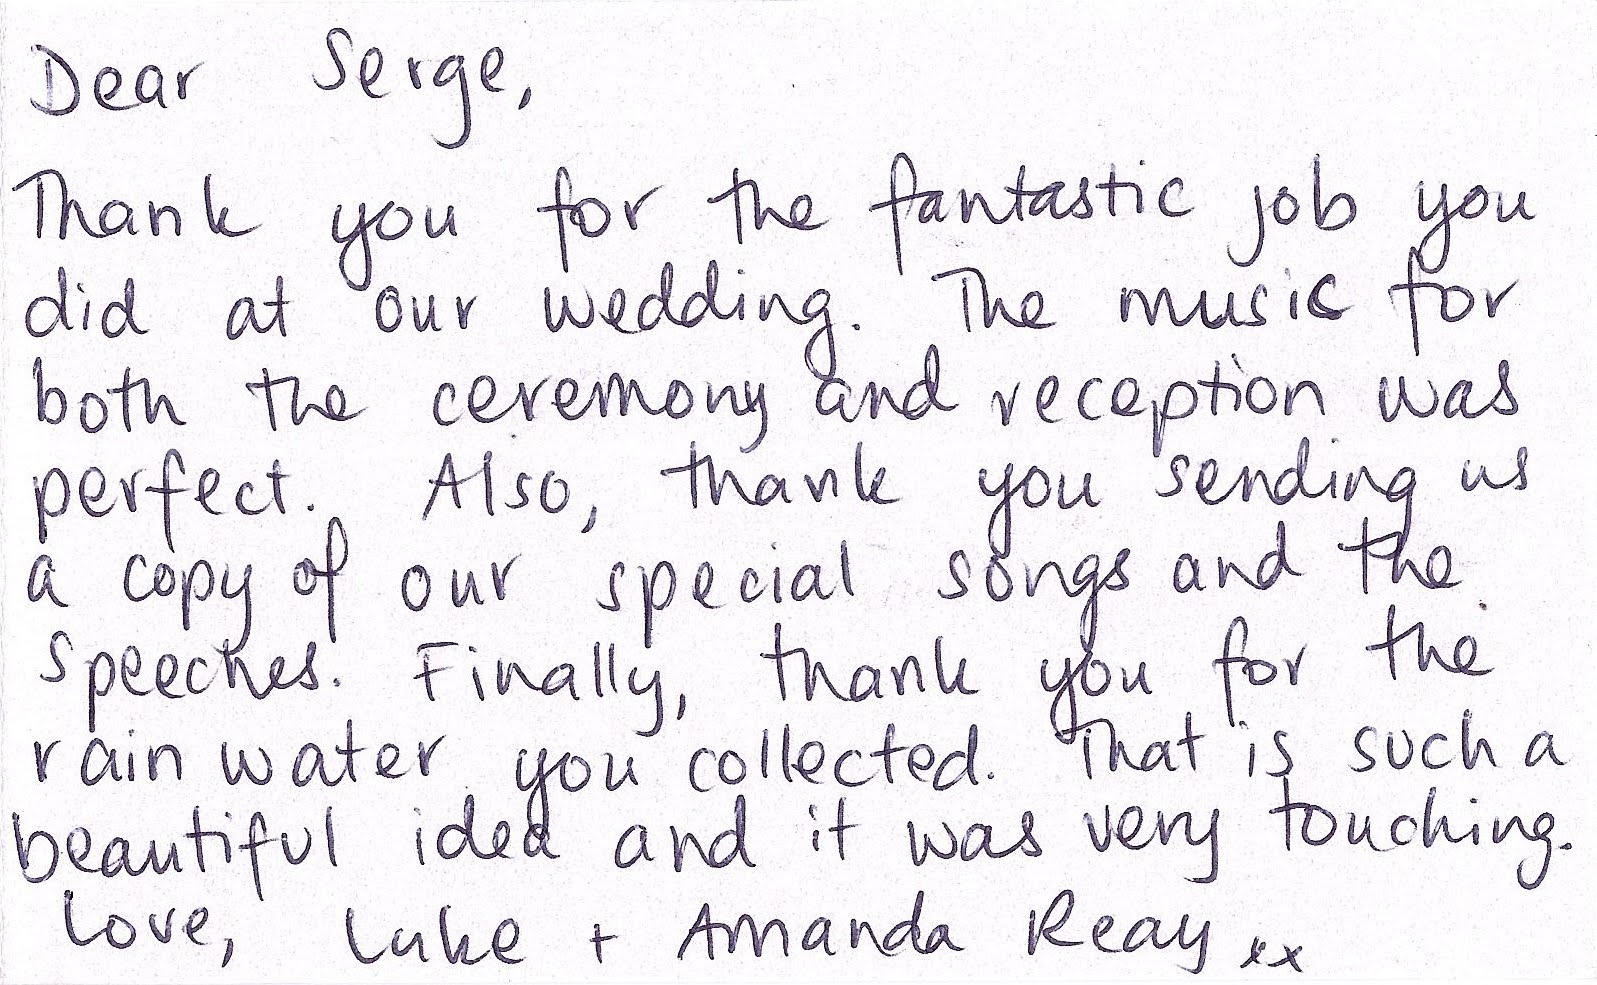 Dear Serge,
Thank you for the fantastic job you
did at our wedding. The music for
both the ceremony and reception was
perfect. Also, thank you sending us
a copy of our special songs and the
speeches. Finally, thank you for the
rain water you collected. That is such a
beautiful idea and it was very touching.
Love, Luke + Amanda Reay xx